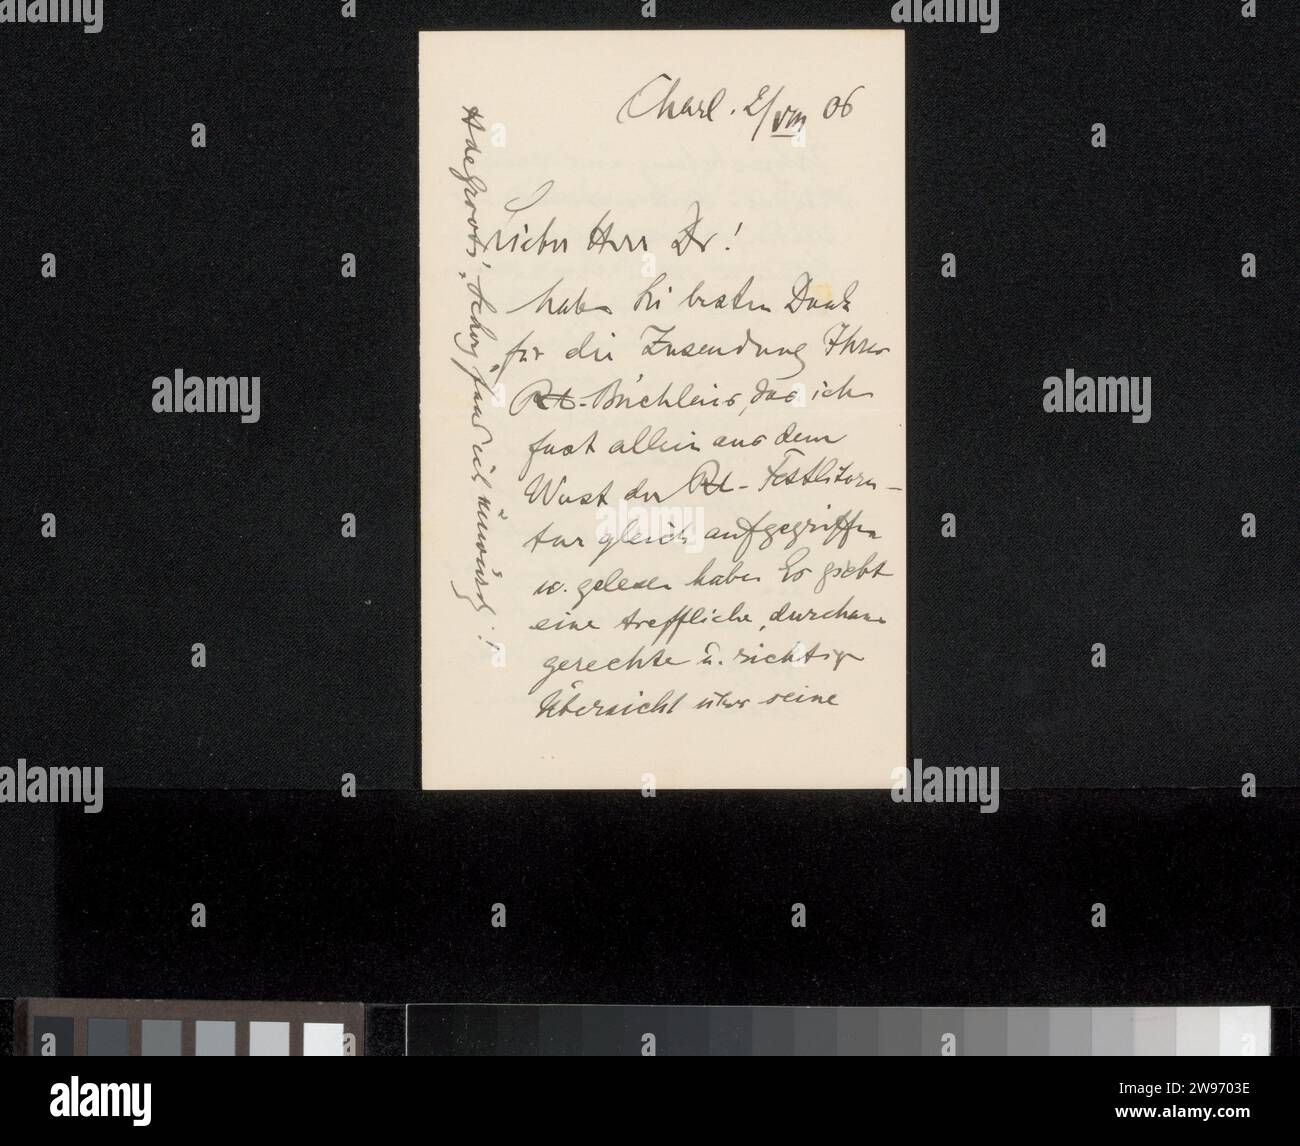 Charl. 2/VIII 06
Lieber Herr Dr!
haben Sie besten Dank
für die Zusendung Ihres
Rt-Büchleins, das ich
fast allein aus dem
Wust der Rt-Festlitera-
tur gleich aufgegriffen
u. gelesen habe. Es giebt
eine treffliche, durchaus
gerechte u. richtige
Übersicht über seine
H de Groots' „Schoy" fand ich
alamy
a
alamy
Image ID: 2W9703E
www.alamy.com